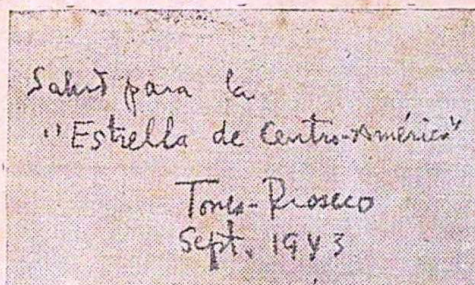 Salud para la
"Estrella de Centro-América"
Torres-Rioseco
Sept. 1943